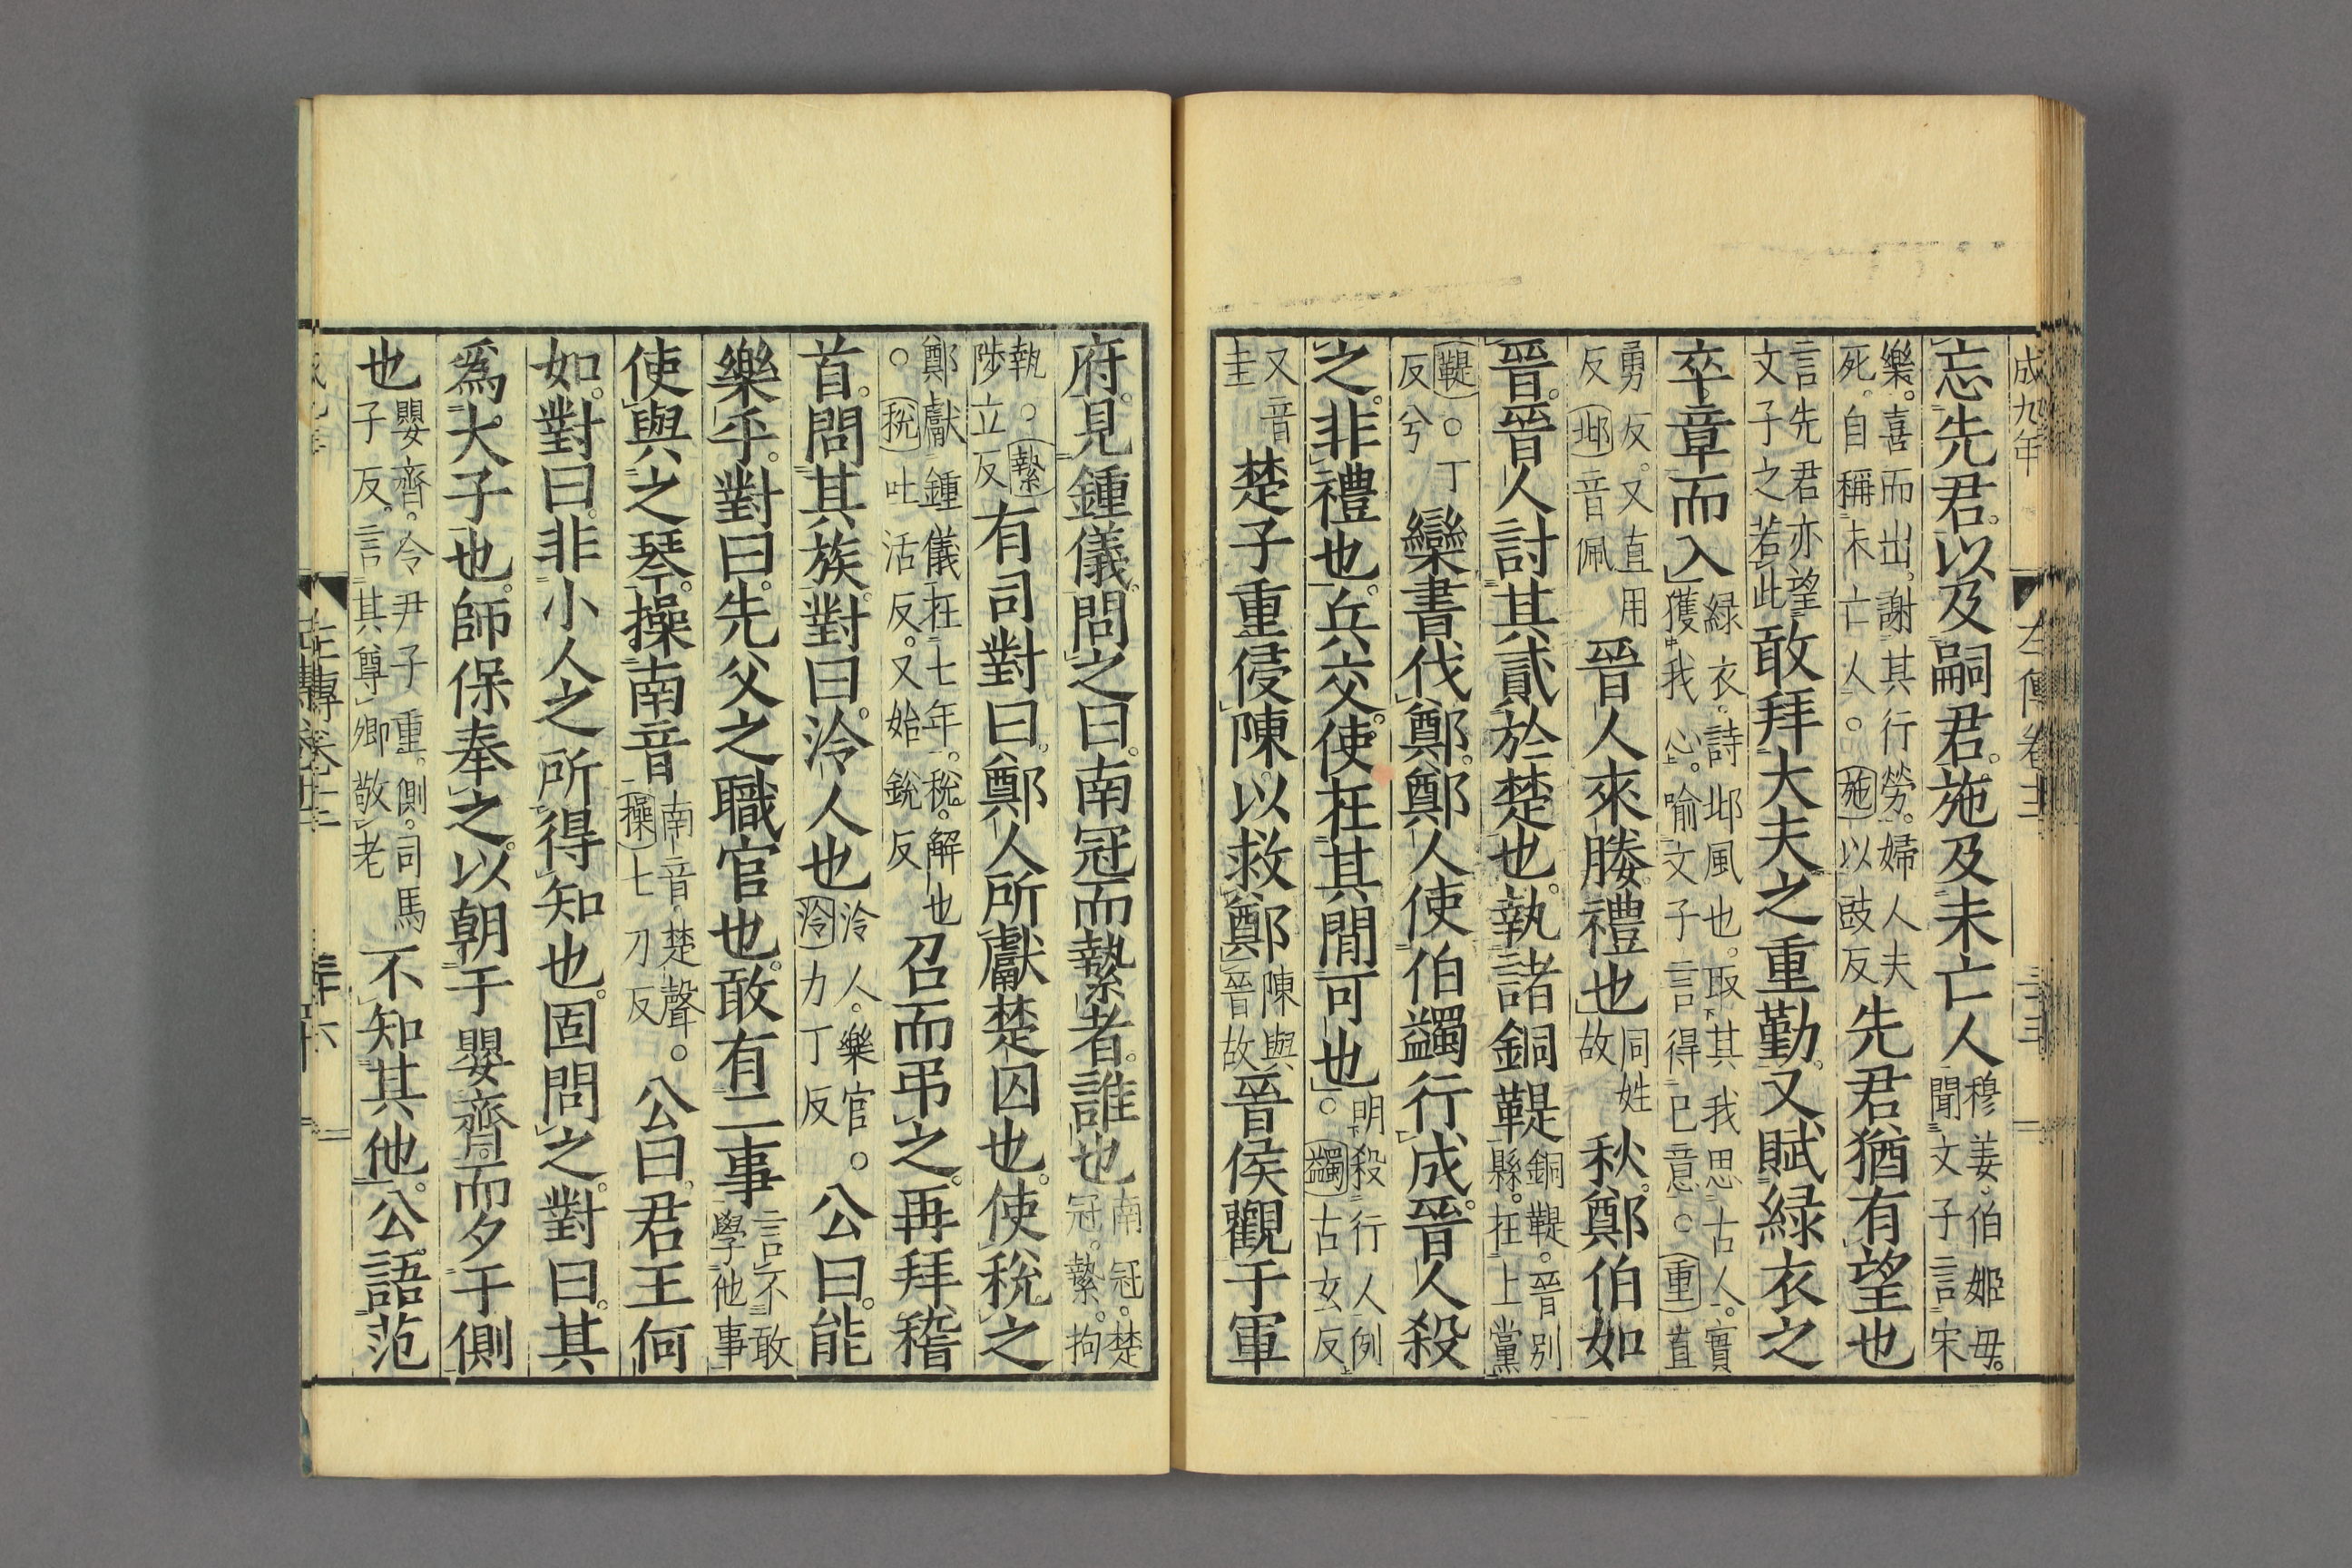 成九年
左傳卷十二
三十三
忘先君。以及嗣君。施及未亡人穆姜。伯姬母。聞文子言宋
樂。喜而出。謝其行勞。婦人夫死。自稱未亡人。○施以豉反先君猶有望也
言先君亦望文子之若此敢拜大夫之重勤。又賦緑衣之
卒章而入緑衣。詩邶風也。取其我思古人。實獲我心。喻文子言得己意。○重直
勇反。又直用反邶音佩晉人來媵。禮也同姓故秋。鄭伯如
晉。晉人討其貳於楚也。執諸銅鞮銅鞮。晉別縣。在上黨
○鞮丁兮反欒書伐鄭。鄭人使伯蠲行成。晉人殺
之。非禮也。兵交。使在其間可也。明殺行人例○蠲古玄反
又音圭楚子重侵陳以救鄭陳與晉故晉侯觀于軍
府。見鍾儀。問之曰。南冠而縶者。誰也南冠。楚冠。縶。拘
執○縶陟立反有司對曰。鄭人所獻楚囚也。使稅之
鄭獻鍾儀在七年。稅。解也○稅吐活反。又始銳反召而弔之。再拜稽
首。問其族。對曰。泠人也泠人。樂官。○泠力丁反公曰。能
樂乎。對曰。先父之職官也。敢有二事言不敢學他事
使與之琴。操南音南音。楚聲。○操七刀反公曰。君王何
如。對曰。非小人之所得知也。固問之。對曰。其
爲大子也。師保奉之。以朝于嬰齊。而夕于側
也嬰齊。令尹子重。側。司馬子反。言其尊卿敬老不知其他。公語范